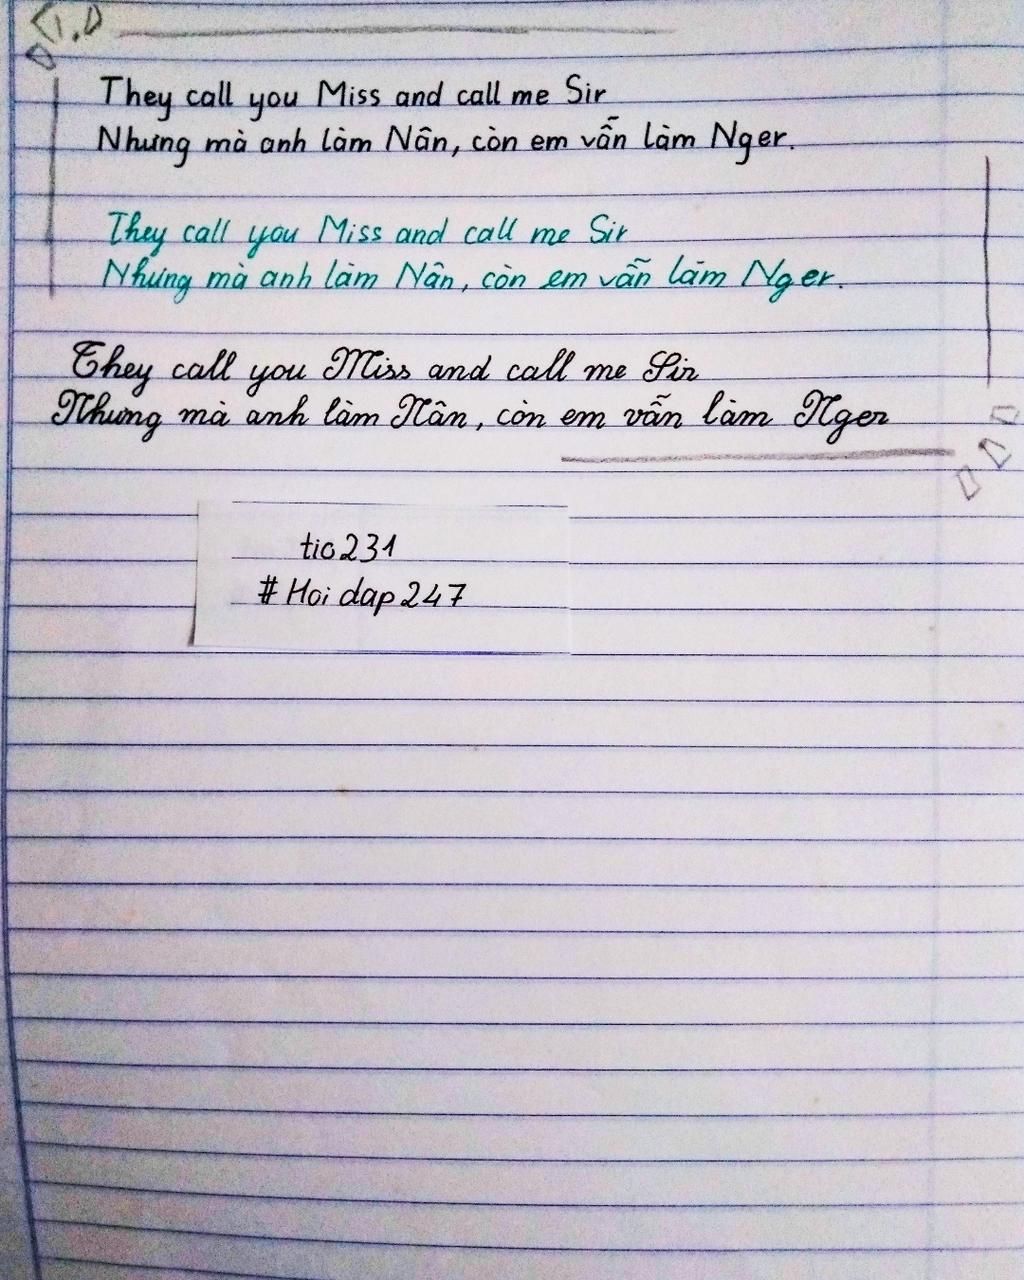 They call you Miss and call me Sir
Nhưng mà anh làm Nân, còn em vẫn làm Nger.
They call you Miss and call me Sir
Nhưng mà anh làm Nân, còn em vẫn làm Nger.
They call you Miss and call me Sir
Nhưng mà anh làm Nân, còn em vẫn làm Nger
tic231
#Hoi dap 247